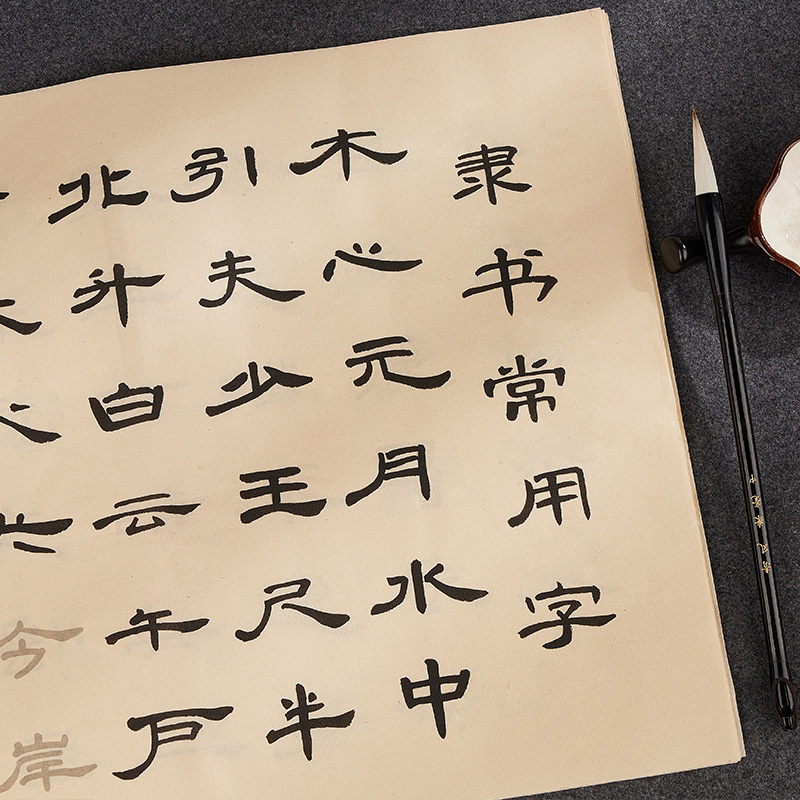 隶书常用字
木心元月水中
引夫少王尺半
北升白云午户
今岸